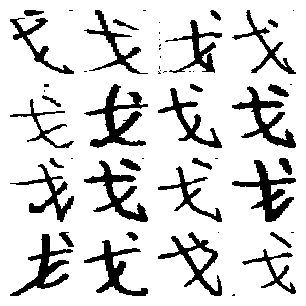 戈戈戈戈
戈戈戈戈
戈戈戈戈
戈戈戈戈